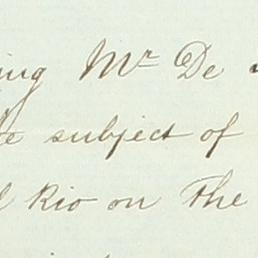 Mr De
subject of
Rio on The